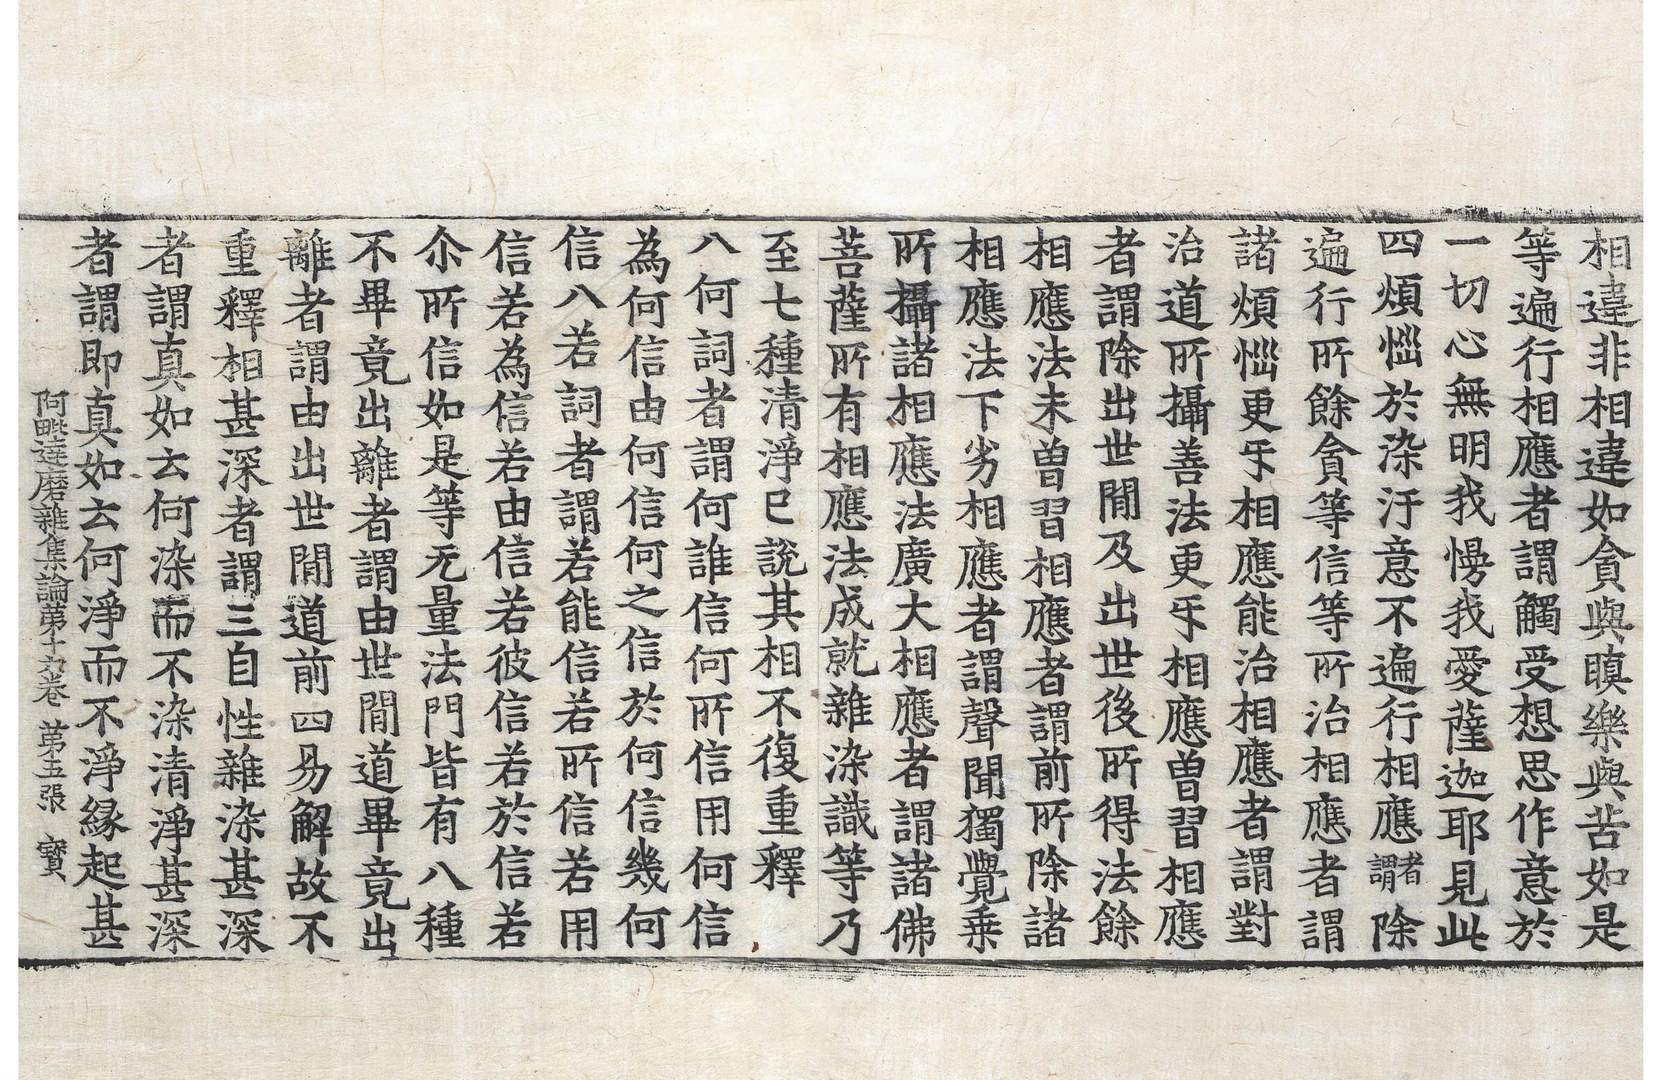 相違非相違如貪與瞋樂與苦如是
等遍行相應者謂觸受想思作意於
一切心無明我慢我愛薩迦耶見此
四煩惱於染汙意不遍行相應者謂除
遍行所餘貪等信等所治相應者謂
諸煩惱更㸦相應能治相應者謂對
治道所攝善法更㸦相應曽習相應
者謂除出世閒及出世後所得法餘
相應法未曽習相應者謂前所除諸
相應法下劣相應者謂聲聞獨覺乗
所攝諸相應法廣大相應者謂諸佛
菩薩所有相應法成就雜染識等乃
至七種清淨已說其相不復重釋
八何詞者謂何誰信何所信用何信
為何信由何信何之信於何信幾何
信八若詞者謂若能信若所信若用
信若為信若由信若彼信若於信若
尒所信如是等无量法門皆有八種
不畢竟出離者謂由世閒道畢竟出
離者謂由出世閒道前四易解故不
重釋相甚深者謂三自性雜染甚深
者謂真如云何染而不染清淨甚深
者謂即真如云何淨而不淨縁起甚
阿毗達磨雜集論第十六卷 第五張 寶